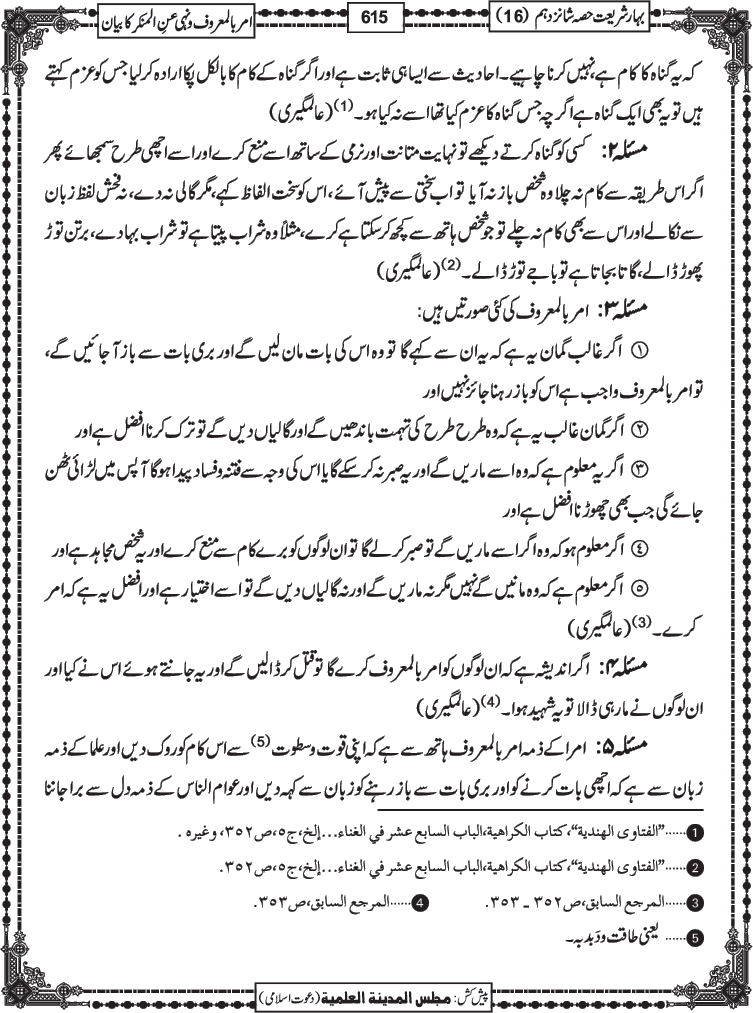 بہارِ شریعت حصہ شانزدہم (16)
615
امر بالمعروف و نہی عن المنکر کا بیان
کہ یہ گناہ کا کام ہے، نہیں کرنا چاہیے۔ احادیث سے ایسا ہی ثابت ہے اور اگر گناہ کے کام کا بالکل پکا ارادہ کرلیا جس کو عزم کہتے
ہیں تو یہ بھی ایک گناہ ہے اگرچہ جس گناہ کا عزم کیا تھا اسے نہ کیا ہو۔(1) (عالمگیری)
مسئلہ ۲: کسی کو گناہ کرتے دیکھے تو نہایت متانت اور نرمی کے ساتھ اسے منع کرے اور اسے اچھی طرح سمجھائے پھر
اگر اس طریقہ سے کام نہ چلا وہ شخص باز نہ آیا تو اب سختی سے پیش آئے، اس کو سخت الفاظ کہے، مگر گالی نہ دے، نہ فحش لفظ زبان
سے نکالے اور اس سے بھی کام نہ چلے تو جو شخص ہاتھ سے کچھ کرسکتا ہے کرے، مثلاً وہ شراب پیتا ہے تو شراب بہادے، برتن توڑ
پھوڑ ڈالے، گاتا بجاتا ہے تو باجے توڑ ڈالے۔(2) (عالمگیری)
مسئلہ ۳: امر بالمعروف کی کئی صورتیں ہیں:
① اگر غالب گمان یہ ہے کہ یہ ان سے کہے گا تو وہ اس کی بات مان لیں گے اور بری بات سے باز آجائیں گے،
تو امر بالمعروف واجب ہے اس کو باز رہنا جائز نہیں اور
② اگر گمان غالب یہ ہے کہ وہ طرح طرح کی تہمت باندھیں گے اور گالیاں دیں گے تو ترک کرنا افضل ہے اور
③ اگر یہ معلوم ہے کہ وہ اسے ماریں گے اور یہ صبر نہ کرسکے گا یا اس کی وجہ سے فتنہ و فساد پیدا ہوگا آپس میں لڑائی ٹھن
جائے گی جب بھی چھوڑنا افضل ہے اور
④ اگر معلوم ہو کہ وہ اگر اسے ماریں گے تو صبر کرلے گا تو ان لوگوں کو برے کام سے منع کرے اور یہ شخص مجاہد ہے اور
⑤ اگر معلوم ہے کہ وہ مانیں گے نہیں مگر نہ ماریں گے اور نہ گالیاں دیں گے تو اسے اختیار ہے اور افضل یہ ہے کہ امر
کرے۔(3) (عالمگیری)
مسئلہ ۴: اگر اندیشہ ہے کہ ان لوگوں کو امر بالمعروف کرے گا تو قتل کر ڈالیں گے اور یہ جانتے ہوئے اس نے کیا اور
ان لوگوں نے مار ہی ڈالا تو یہ شہید ہوا۔(4) (عالمگیری)
مسئلہ ۵: امرا کے ذمہ امر بالمعروف ہاتھ سے ہے کہ اپنی قوت و سطوت(5) سے اس کام کو روک دیں اور علما کے ذمہ
زبان سے ہے کہ اچھی بات کرنے کو اور بری بات سے باز رہنے کو زبان سے کہہ دیں اور عوام الناس کے ذمہ دل سے برا جاننا
1 ......"الفتاوی الهندية"، كتاب الكراهية،الباب السابع عشر في الغناء...إلخ،ج٥،ص٣٥٢، وغيره .
2 ......"الفتاوی الهندية"، كتاب الكراهية،الباب السابع عشر في الغناء...إلخ،ج٥،ص٣٥٢.
3 ......المرجع السابق،ص٣٥٢ ـ ٣٥٣. 4 ......المرجع السابق،ص٣٥٣.
5 ...... یعنی طاقت و دَبدبہ۔
پیش کش: مجلس المدينة العلمية (دعوت اسلامی)